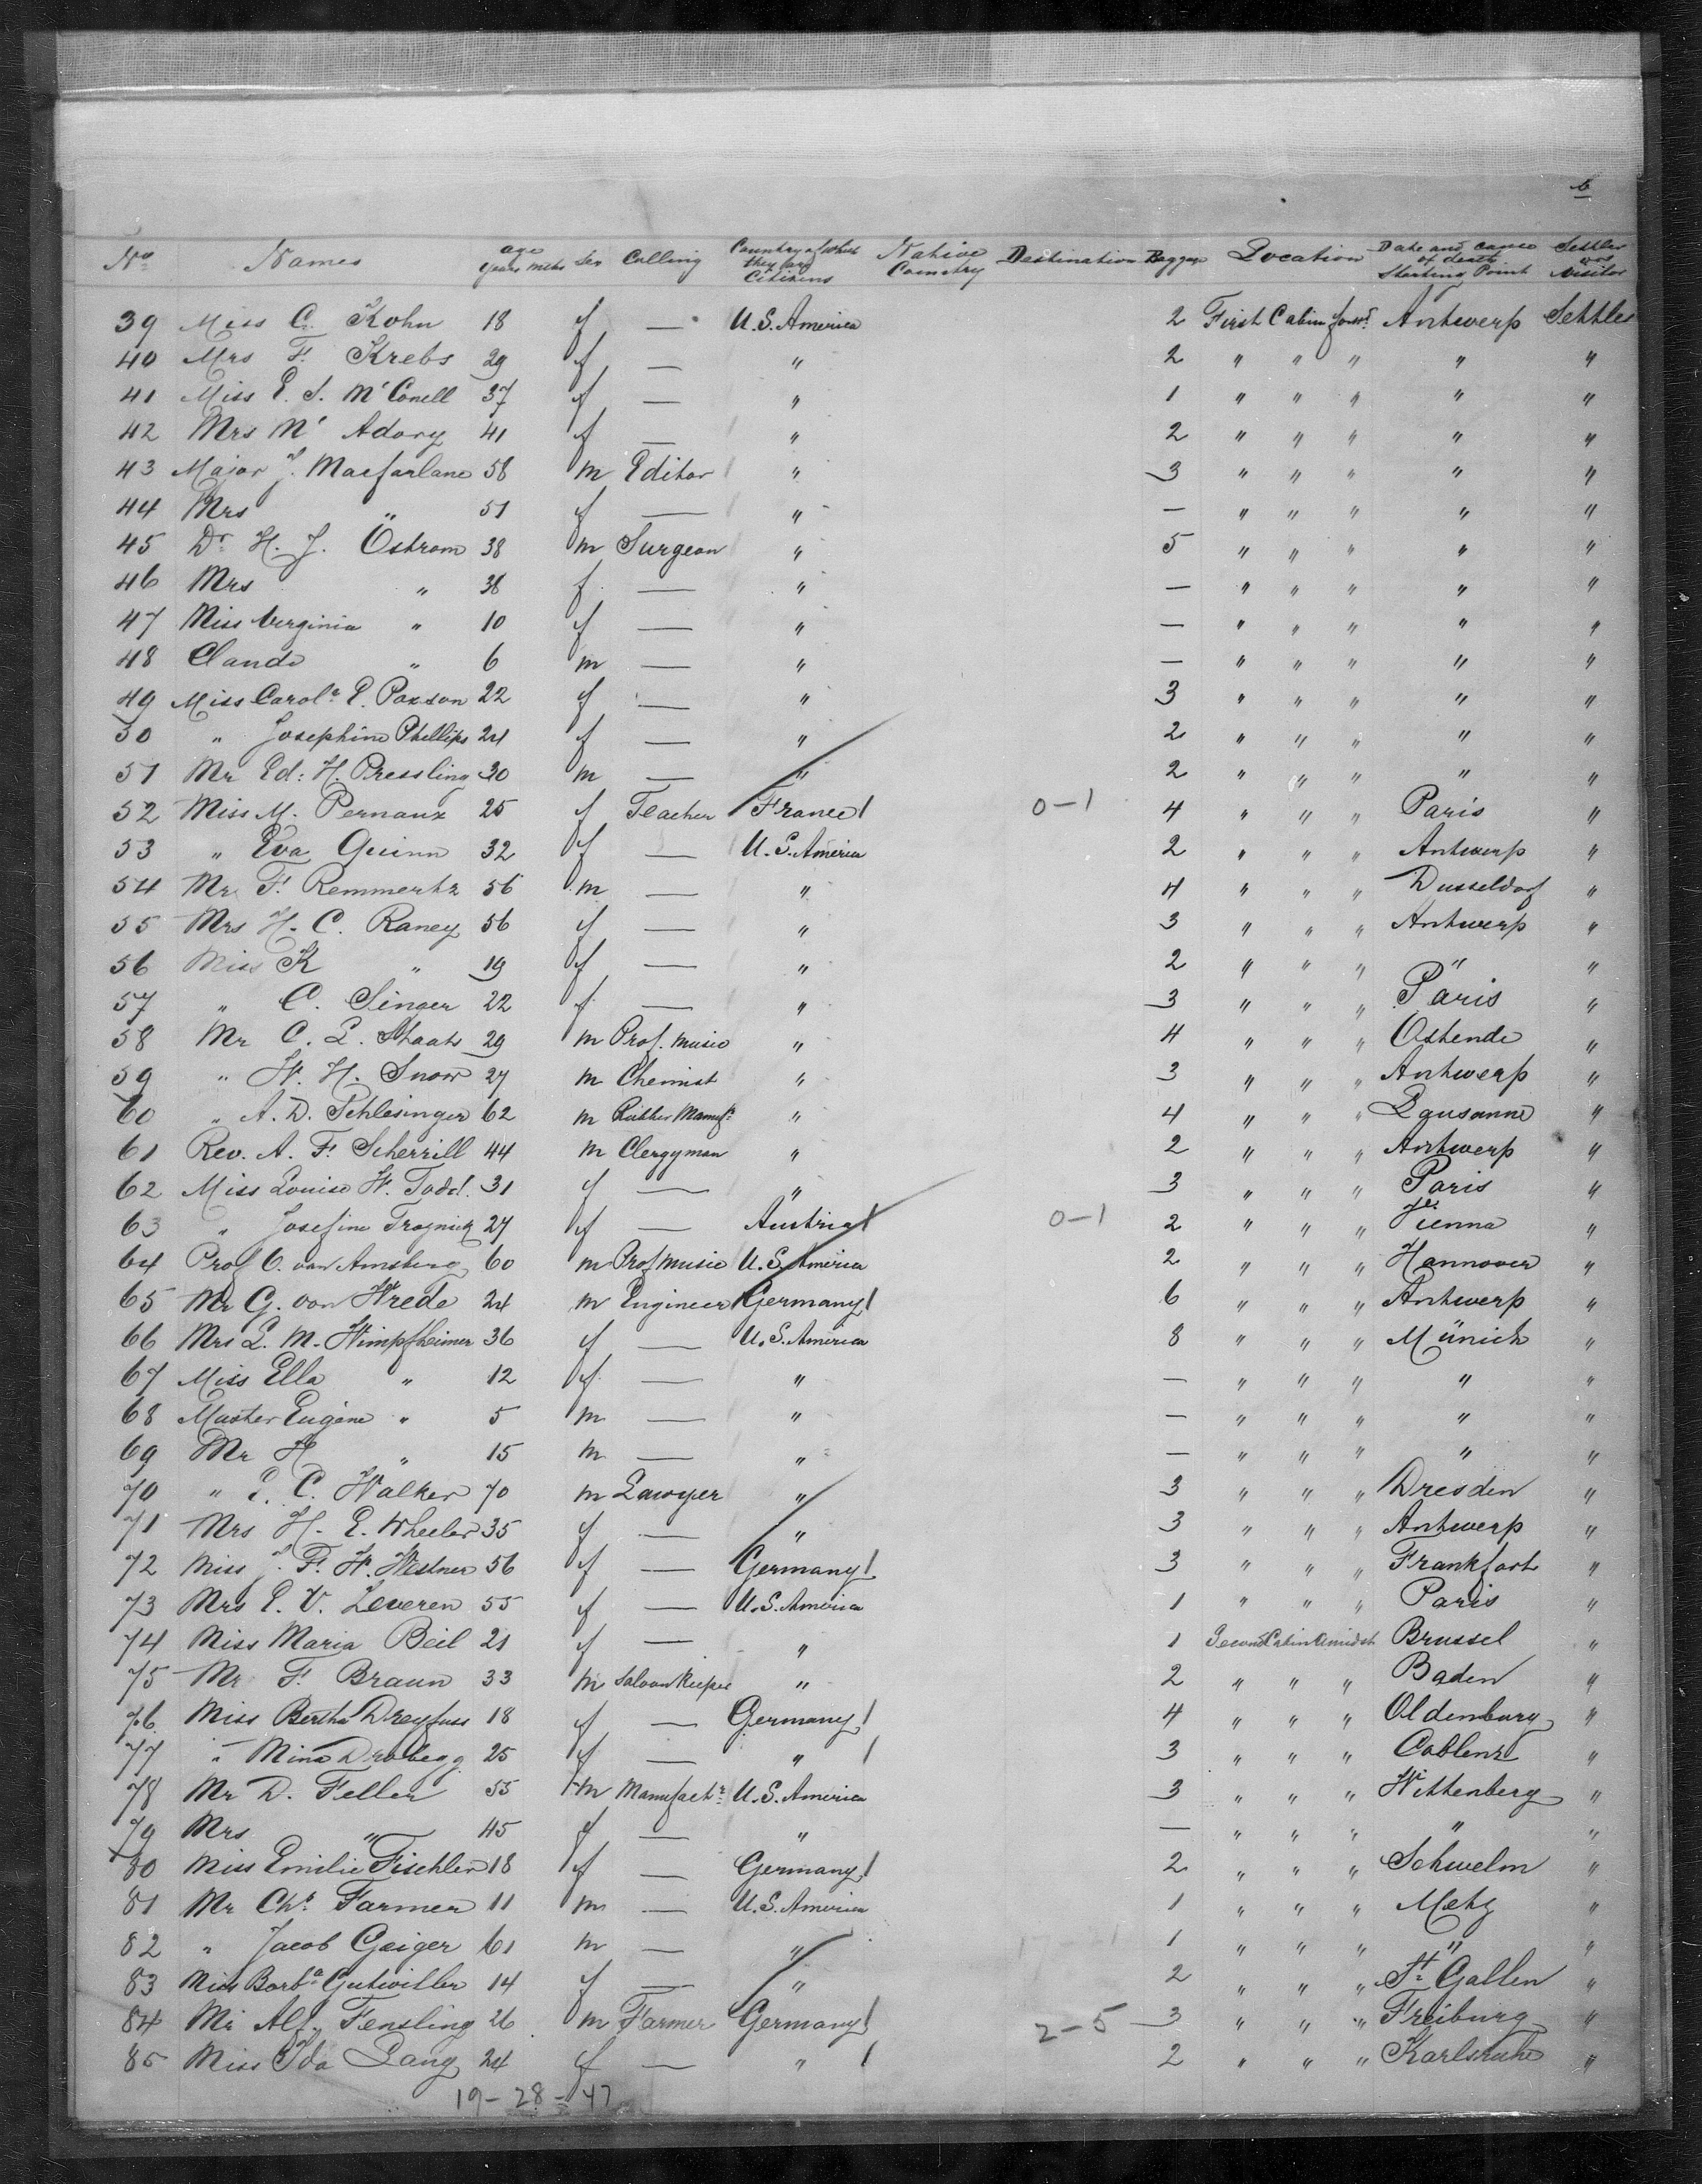 6
No Names age years mths Sex Calling Country of which they are Citizens Native Country Destination Baggage Location Date and cause of death Starting Point Settler or Visitor
39 Miss C. Kohn 18 f — U.S. America 2 First Cabin forwd. Antwerp Settler
40 Mrs F. Krebs 29 f — " 2 " " " " "
41 Miss E. S. McConell 37 f — " 1 " " " " "
42 Mrs Mc Adory 41 f — " 2 " " " " "
43 Major J. Macfarlane 58 m Editor " 3 " " " " "
44 Mrs " 51 f — " — " " " " "
45 Dr. H. J. Östrom 38 m Surgeon " 5 " " " " "
46 Mrs " 38 f — " — " " " " "
47 Miss Verginia " 10 f — " — " " " " "
48 Claude " 6 m — " — " " " " "
49 Miss Carole. E. Paxson 22 f — " 3 " " " " "
50 " Josephine Phillips 24 f — " 2 " " " " "
51 Mr Ed: H. Pressling 30 m — " 2 " " " " "
52 Miss M. Pernaux 25 f Teacher France 0-1 4 " " " Paris "
53 " Eva Quinn 32 f — U.S. America 2 " " " Antwerp "
54 Mr F. Remmertz 56 m — " 4 " " " Dusseldorf "
55 Mrs H. C. Raney 56 f — " 3 " " " Antwerp "
56 Miss K " 19 f — " 2 " " " " "
57 " C. Singer 22 f — " 3 " " " Paris "
58 Mr C. L. Staats 29 m Prof. music " 4 " " " Ostende "
59 " W. H. Snow 27 m Chemist " 3 " " " Antwerp "
60 " A. D. Schlesinger 62 m Rubber Manufr. " 4 " " " Lausanne "
61 Rev. A. F. Scherrill 44 m Clergyman " 2 " " " Antwerp "
62 Miss Louise W. Todd. 31 f — " 3 " " " Paris "
63 " Josefine 27 f — Austria 0-1 2 " " " Vienna "
64 Prof C. van Amsberg 60 m Prof music U.S. America 2 " " " Hannover "
65 Mr G. von Wrede 24 m Engineer Germany 6 " " " Antwerp "
66 Mrs L. M. Wimpfheimer 36 f — U.S. America 8 " " " Münich "
67 Miss Ella " 12 f — " — " " " " "
68 Master Eugene " 5 m — " — " " " " "
69 Mr H " 15 m — " — " " " " "
70 " E. C. Walker 70 m Lawyer " 3 " " " Dresden "
71 Mrs H. E. Wheeler 35 f — " 3 " " " Antwerp "
72 Miss J. F. W. Westner 56 f — Germany 3 " " " Frankfort "
73 Mrs E. V. Leveren 55 f — U.S. America 1 " " " Paris "
74 Miss Maria Beil 21 f — " 1 Second Cabin Amidsh Brussel "
75 Mr F. Braun 33 m Saloon Keeper " 2 " " " Baden "
76 Miss Bertha Dreyfuss 18 f — Germany 4 " " " Oldenburg "
77 " Mina Drobegg 25 f — " 3 " " " Coblenz "
78 Mr D. Feller 55 m Manufactr. U.S. America 3 " " " Wittenberg "
79 Mrs " 45 f — " — " " " " "
80 Miss Emilie Fischler 18 f — Germany 2 " " " Schwelm "
81 Mr Chr. Farmer 11 m — U.S. America 1 " " " Metz "
82 " Jacob Geiger 61 m — " 1 " " " " "
83 Miss Barba. Gutwiller 14 f — " 2 " " " St. Gallen "
84 Mr Alf. Fensling 26 m Farmer Germany 2-5 3 " " " Freiburg "
85 Miss Ida Lang 24 f — " 2 " " " Karlsruhe "
19-28-47